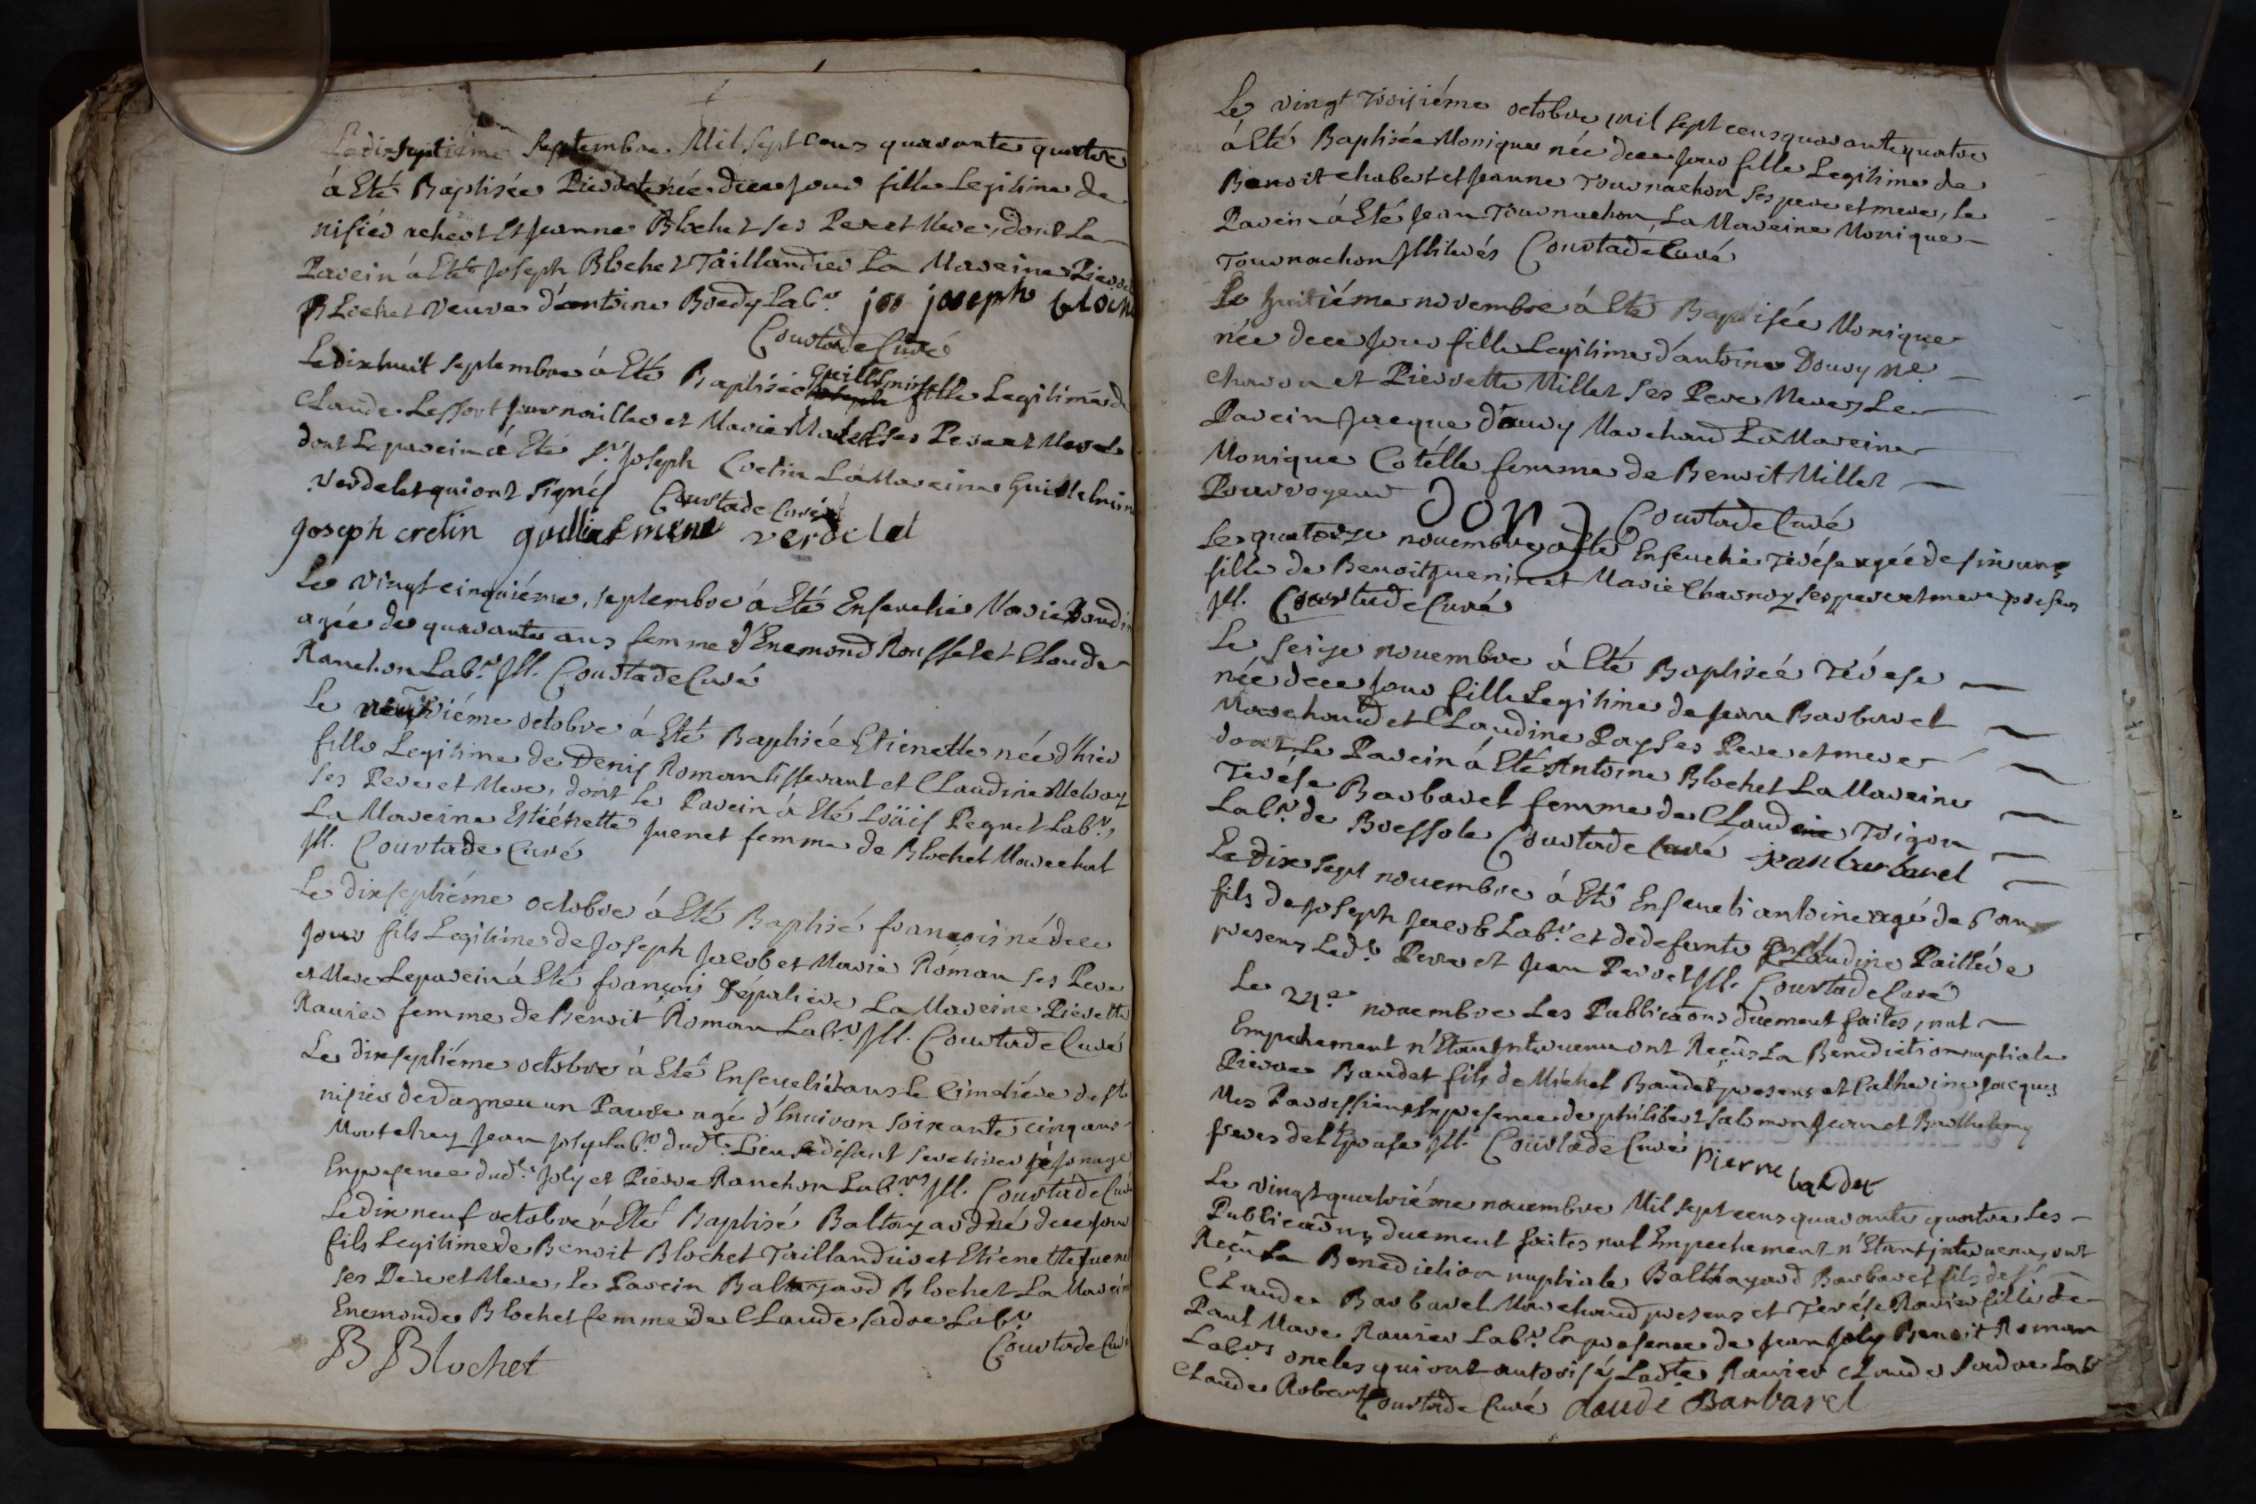 Le dixseptiéme Septembre Mil Sept Cens quarante quatre
à Eté Baptisée Pierrette née de ce jour fille Legitime de
nisiér achert et Jeanne Blochet ses Pere et Mere, dont Le
Parein à Eté Joseph Blochet Taillandier La Mareine Pierrette
Blochet veuve d'antoine Boedy Labr. joseph bloche
Courtade Curé
Le dixhuit Septembre à Eté Baptisée guillelmine fille Legitime de
Claude Leffort Journaillier et Marie ses Pere et Mere
dont Le parein à Eté Sr. Joseph Cretin La Mareine Guillelmine
Verdelet qui ont signés Courtade Curé
joseph cretin guillielmine verdelet
Le vingt cinquiéme, septembre à Eté Ensevelie Marie
agée de quarante ans femme d'Enemond Rousset et Claude
Ranchon Labr. Ill. Courtade Curé
Le neufviéme octobre à Eté Baptisée Etienette née d'hier
fille Legitime de Denis Roman tisserant et Claudine Meloay
ses Pere et Mere, dont Le Parein à Eté Loüis Peguet Labr,
La Mareine Estiénette Juenet femme de Blochet Marechal
Ill. Courtade Curé
Le dixseptiéme octobre à Eté Baptisé françois né de ce
jour fils Legitime de Joseph Jacob et Marie Roman ses Pere
et Mere Le parein à Eté françois La Mareine Pierette
Ravier femme de Benoit Roman Labr. Ill. Courtade Curé
Le dixseptiéme octobre à Eté Enseveli dans Le Cimetiére de St
nisier de dagneu un Pauvre agé d'Environ soixante cinq ans
Jean Joly Labr. dud. Lieu se disant
En presence dud. Joly et Pierre Ranchon Labrs Ill. Courtade Curé
Le dix neuf octobre à Eté Baptisé Baltazard né de ce jour
fils Legitime de Benoit Blochet Taillandier et Etienette Juenet
ses Pere et Mere, Le Parein Baltazard Blochet La Mareine
Enemonde Blochet femme de Claude Labr.
Courtade Curé
B Blochet
Le vingt troisiéme octobre mil sept cens quarante quatre
à Eté Baptisée Monique née de ce jour fille Legitime de
Benoit chabert et Jeanne Tournachon ses pere et mere, Le
Parein à Eté Jean Tournachon, La Mareine Monique
Tournachon Illitrés Courtade Curé
Le huitiéme novembre à Eté Baptisée Monique
née de ce jour fille Legitime d'antoine Doury me.
charon et Pierrette Millet ses Pere Mere, Le
Parein Jacque doury Marchand La Mareine
Monique Cotélle femme de Benoit Millet
Pourvoyeur Courtade Curé
Le quatorze novembre à Eté Ensevelie Terése agée de six ans
fille de Benoit Juenin et Marie Charnoy ses pere et mere presens
Ill. Courtade Curé
Le seize novembre à Eté Baptisée Terese
née de ce jour fille Legitime de Jean Barbaret
Marchand et Claudine Pay ses Pere et mere
dont Le Parein à Eté Antoine Blochet La Mareine
Terése Barbaret femme de Claude Trigon
Labr. de Boessole Courtade Curé jean barbarel
Le dix sept novembre à Eté Enseveli antoine agé de 6 ans
fils de Joseph Jacob Labr. et de defunte Claudine Paillére
presens Led. Pere et Jean Perret Ill. Courtade Curé
Le 24e novembre Les Publications duement faites, nul
Empechement n'Etant Intervenu ont Reçûs La Benediction nuptiale
Pierre Baudet fils de Michel Baudet presens et Catherine Jacques
Mes Paroissiens En presence de philibert Salomon Jean et Barthelemy
freres de L'Epouse Ill. Courtade Curé pierre baudet
Le vingt quatriéme novembre Mil sept cens quarante quatre Les
Publications duement faites nul Empechement n'Etant intervenu, ont
Reçû La Benediction nuptiale Balthazard Barbaret fils de Sr
Claude Barbaret Marchand presens et Terése Ravier fille de
Paul Marc Ravier Labr. En presence de Jean Joly Benoit Roman
Labrs oncles qui ont autorisé Ladte Ravier Claude Labr
Claude Robert Courtade Curé claude Barbarel